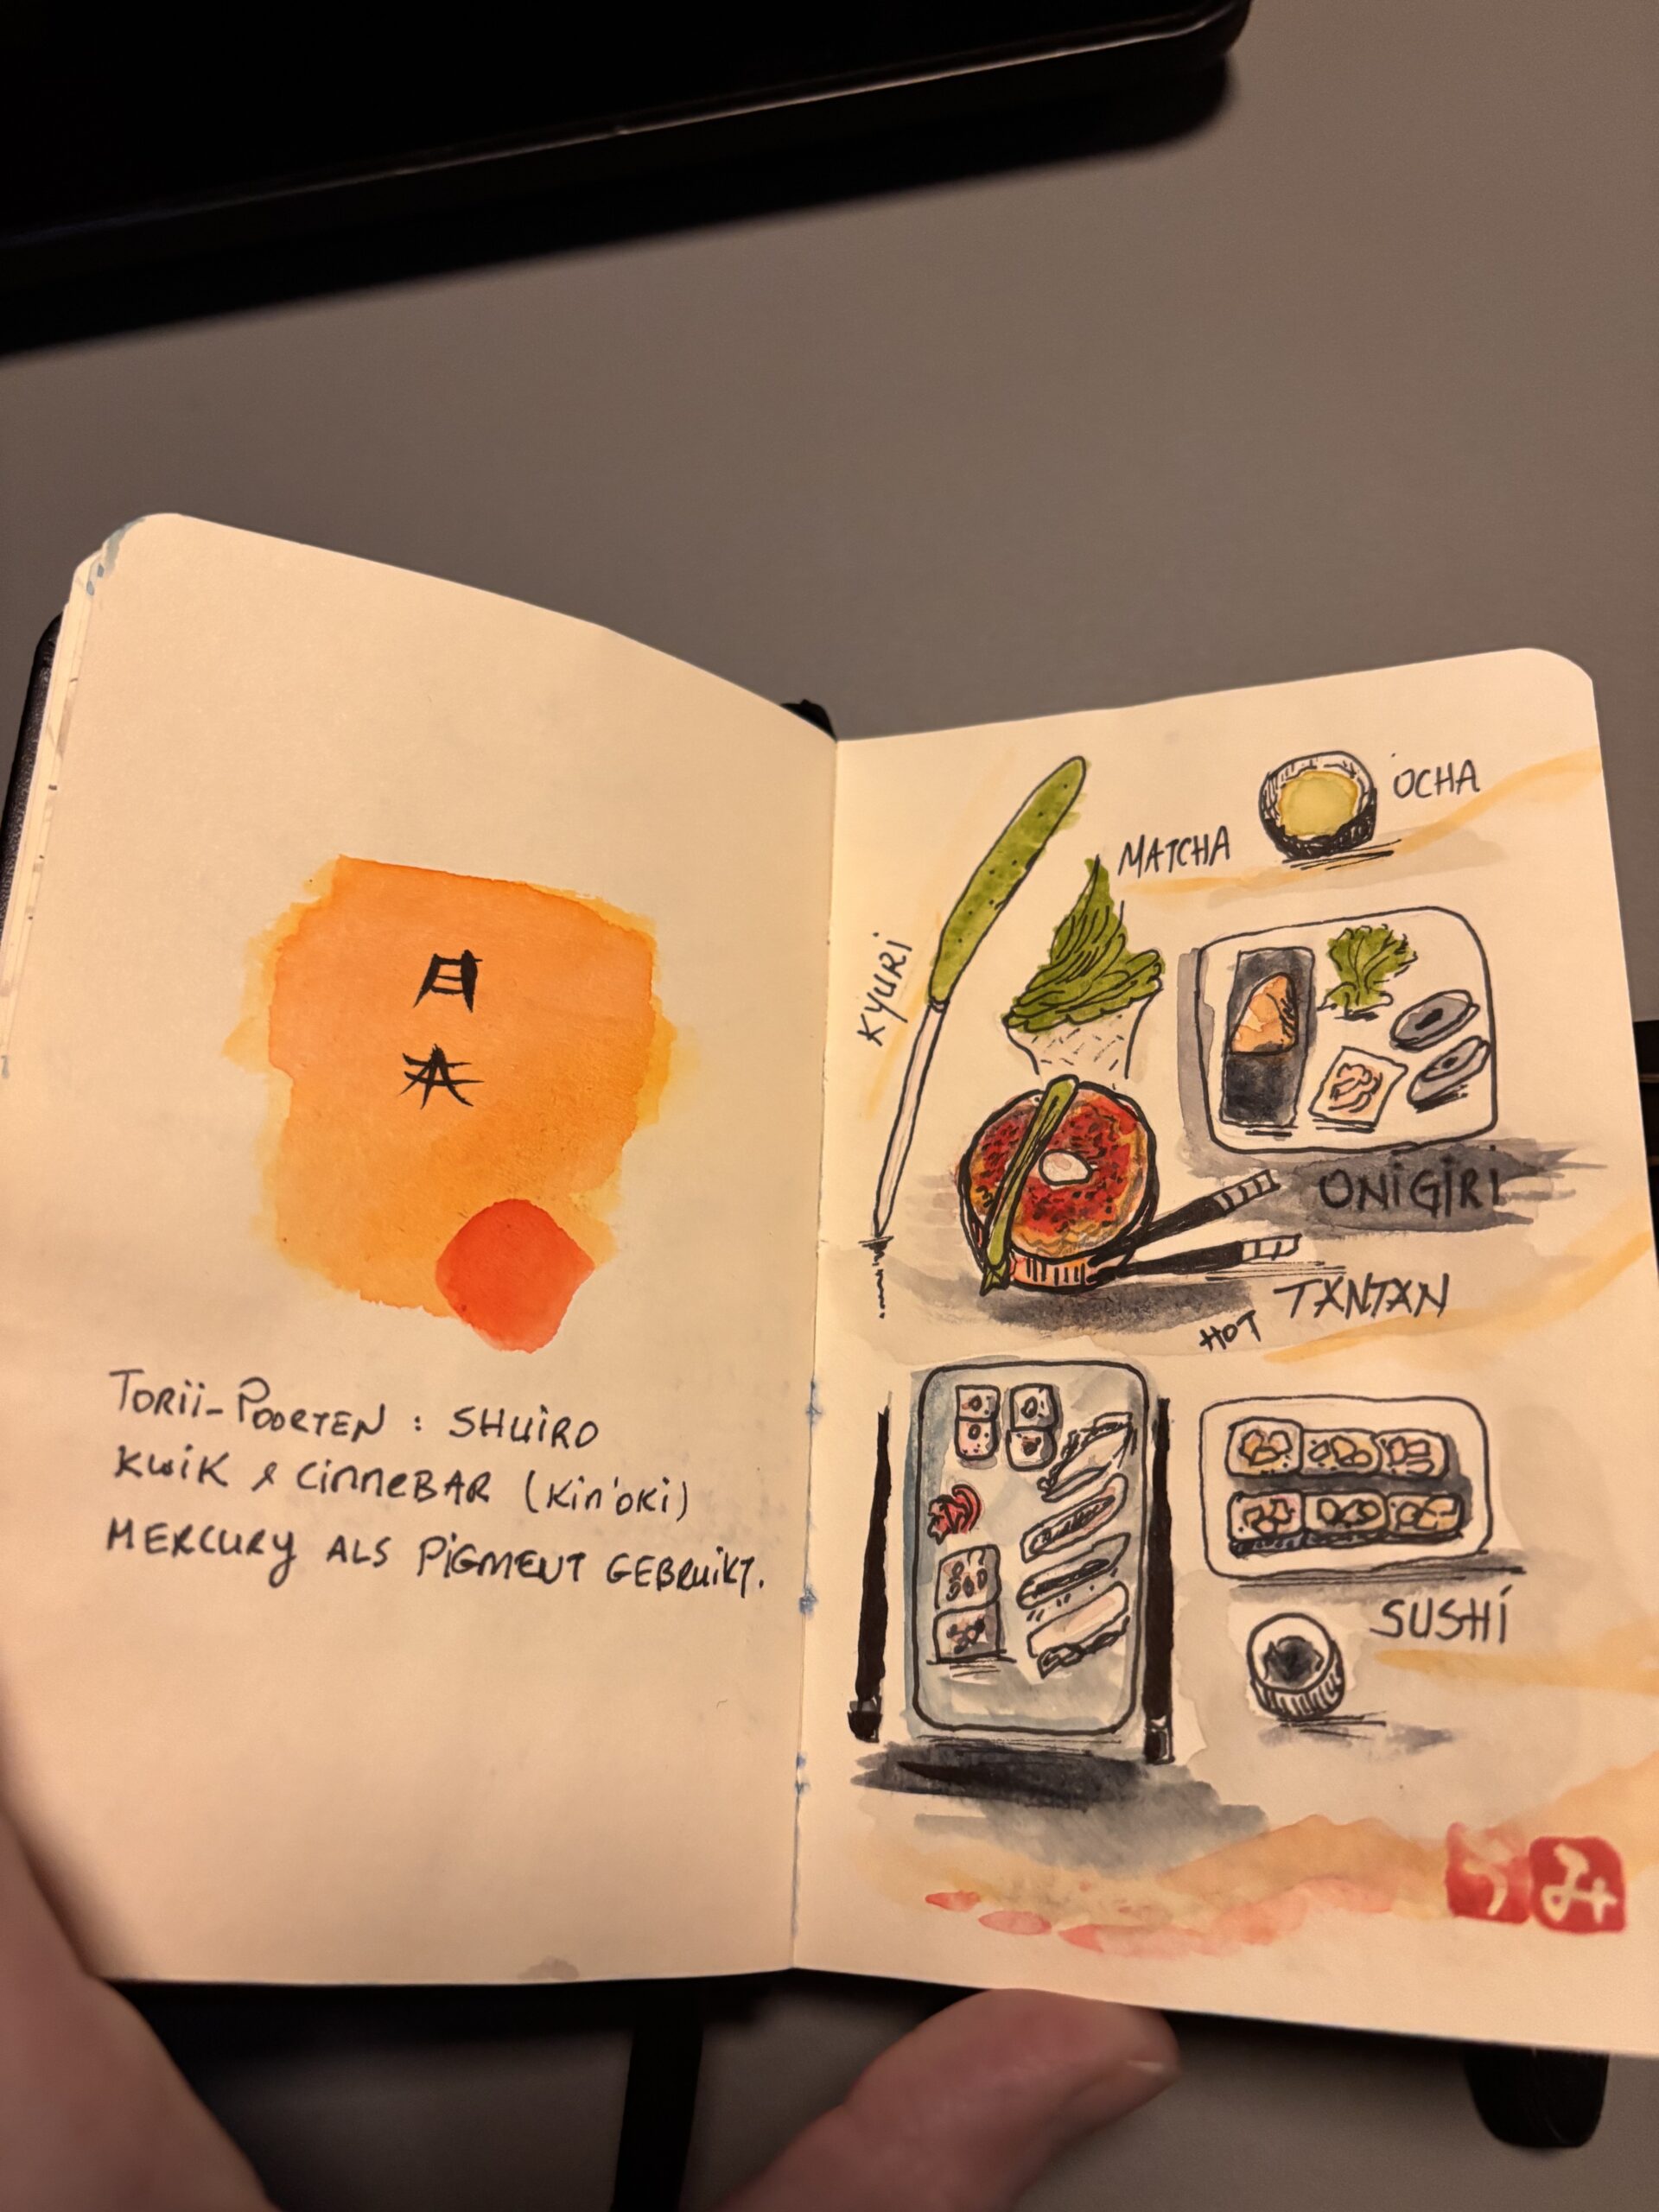 日
本
TORii-POORTEN : SHUiRO
KWiK & CiNNEBAR (Kin'OKi)
MERCURY ALS PiGMENT GEBRUiKT.
OCHA
MATCHA
KYURi
ONiGiRi
HOT TANTAN
SUSHi
うみ